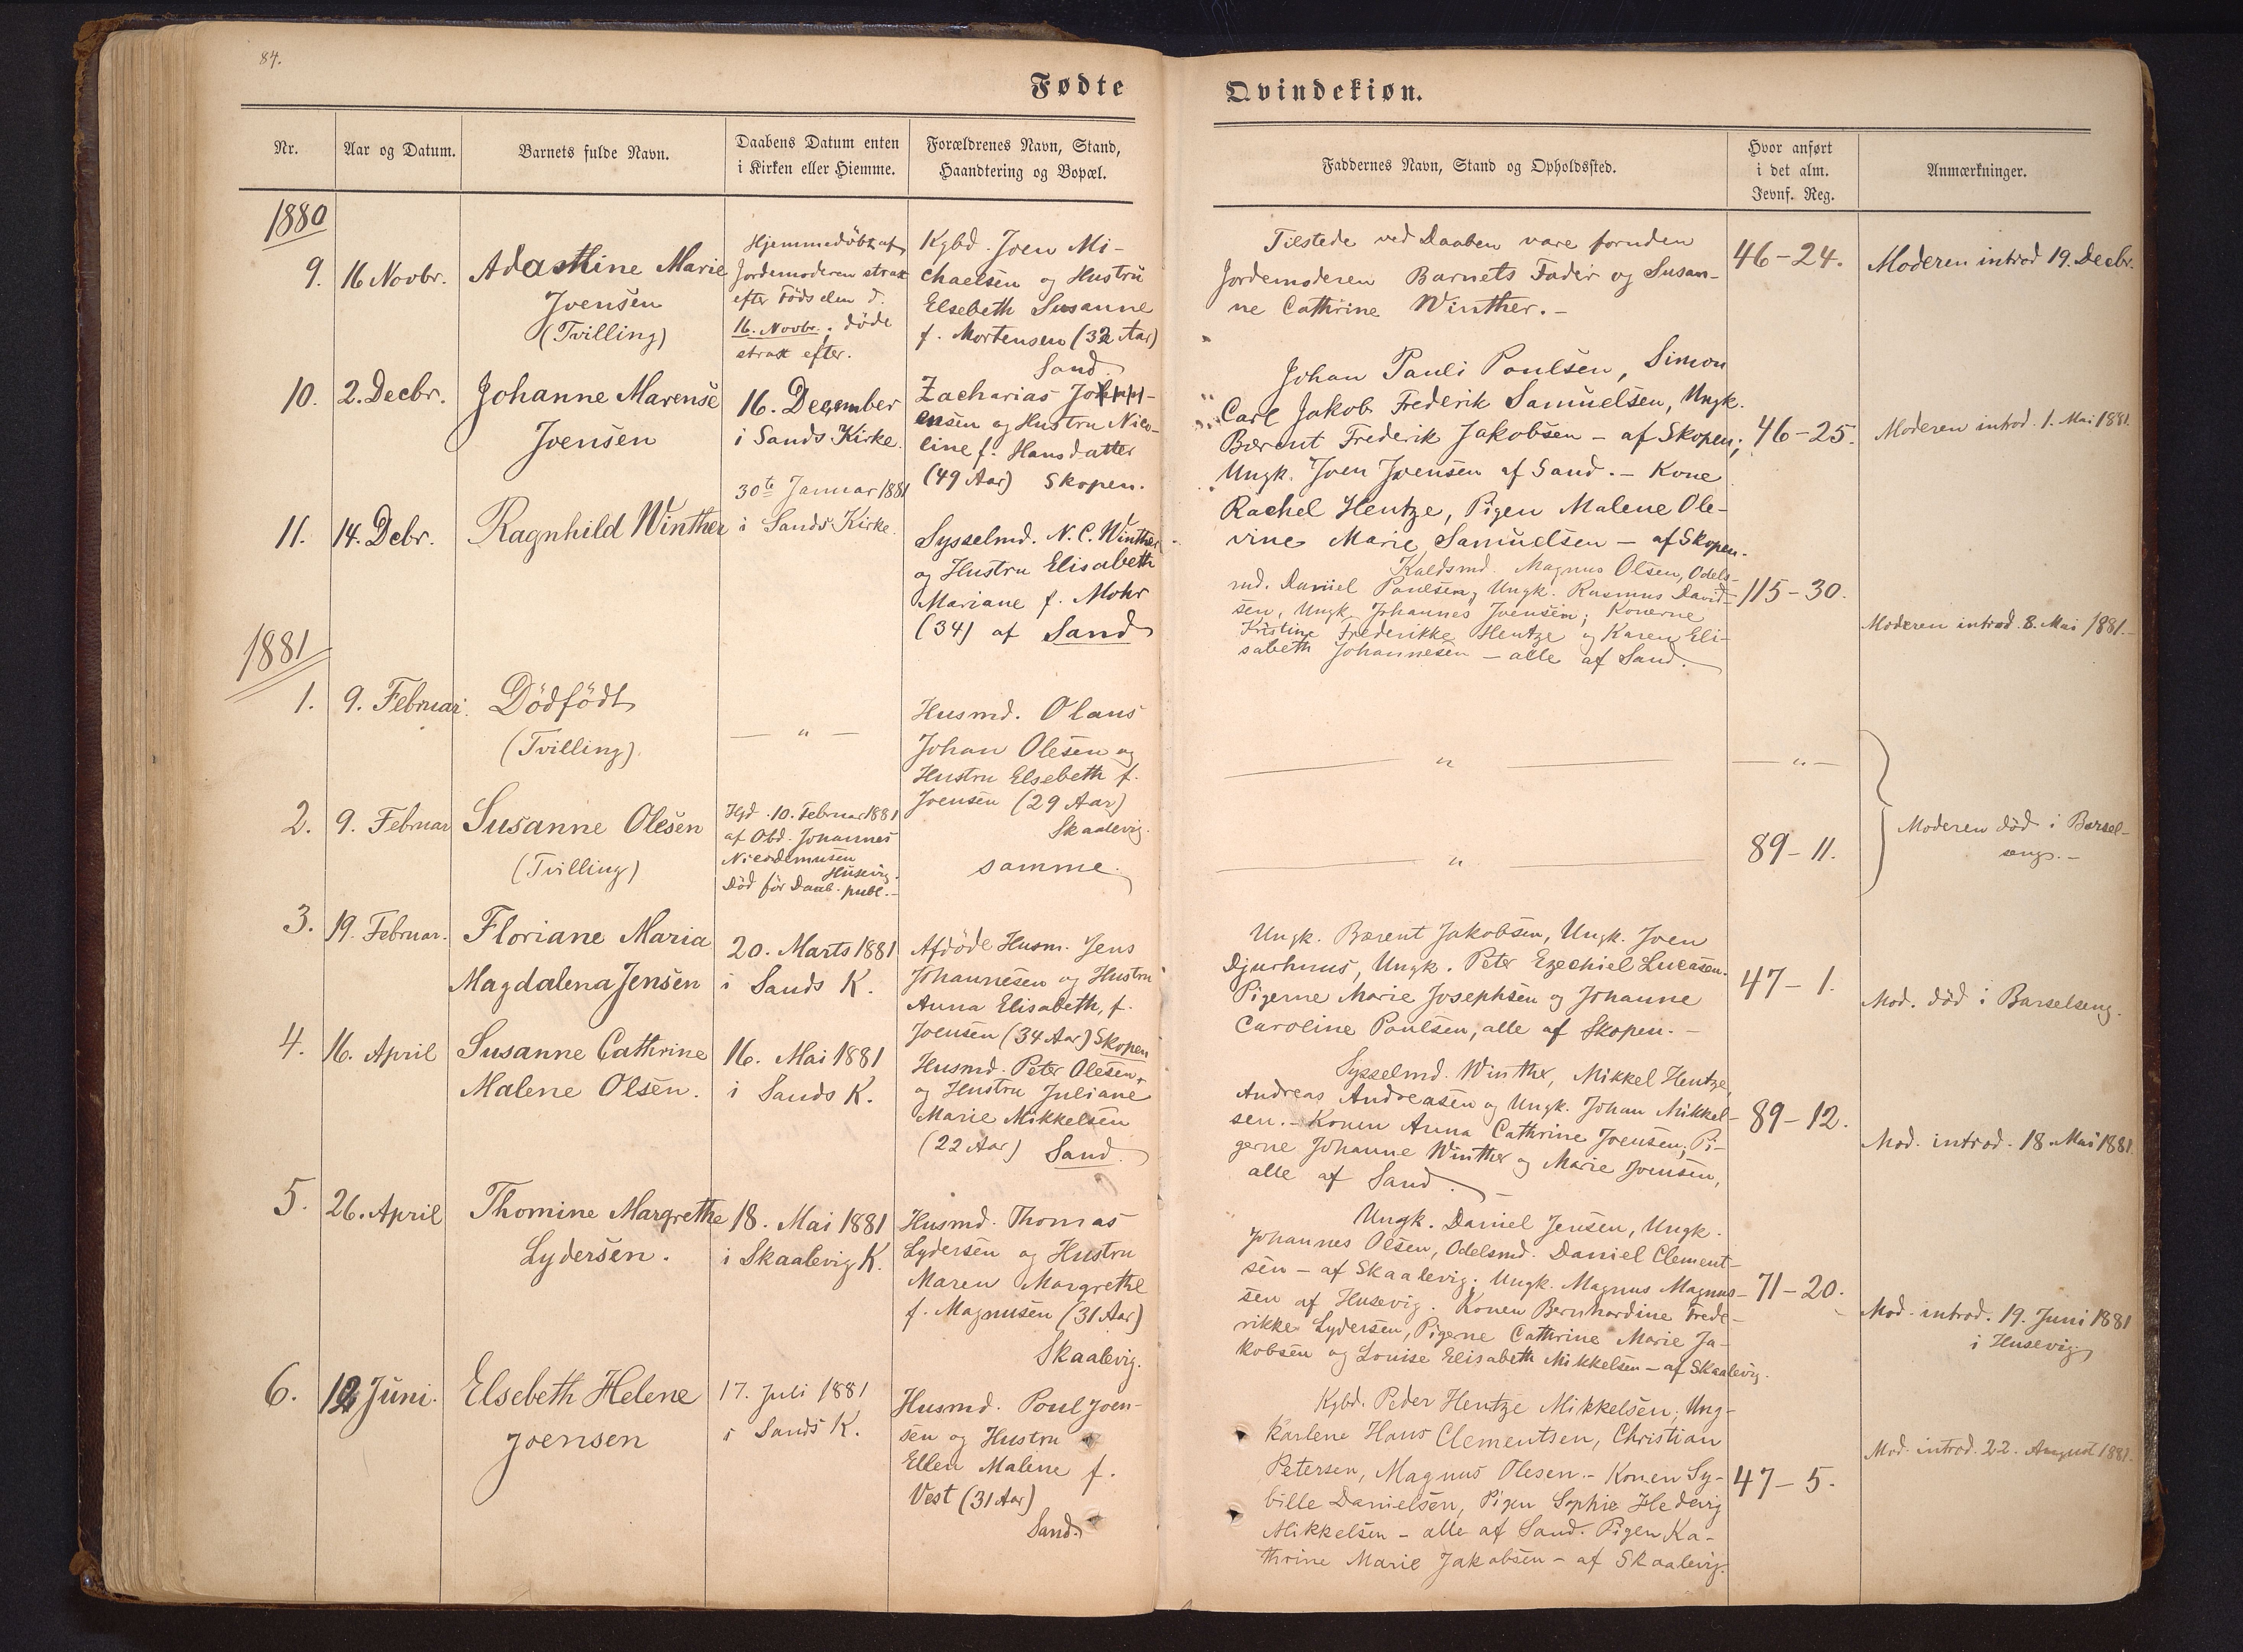 84.
Fødte
Qvindekiøn.
Nr.
Aar og Datum.
Barnets fulde Navn.
Daabens Datum enten
i Kirken eller Hiemme.
Forældrenes Navn, Stand,
Haandtering og Bopæl.
Faddernes Navn, Stand og Opholdssted.
Hvor anført
i det alm.
Jevnf. Reg.
Anmærkninger.
1880
9.
16 Novbr.
Adastine Marie
Joensen
(Tvilling)
Hjemmedöbt af
Jordemoderen strax
efter Födselen d.
16. Novbr.; döde
strax efter.
Kgbd. Joen Mi-
chaelsen og Hustru
Elsebeth Susanne
f. Mortensen (32 Aar)
Sand.
Tilstede ved Daaben vare foruden
Jordemoderen Barnets Fader og Susan-
ne Cathrine Winther. -
46-24.
Moderen introd 19. Decbr.
10.
2. Decbr.
Johanne Marense
Joensen
16. December
i Sands Kirke.
Zacharias Jo
ensen og Hustru Nico-
line f. Hansdatter
(49 Aar) Skopen.
Johan Pauli Poulsen, Simon
Carl Jakob Frederik Samuelsen, Ungk.
Bærent Frederik Jakobsen - af Skopen;
Ungk. Joen Joensen af Sand. - Kone
Rachel Hentze, Pigen Malene Ole-
vine Marie Samuelsen - af Skopen.
46-25.
Moderen introd. 1. Mai 1881.
11.
14. Debr.
Ragnhild Winther
30te Januar 1881
i Sands Kirke.
Sysselmd. N. C. Winther
og Hustru Elisabeth
Mariane f. Mohr
(34) af Sand
Kaldsmd. Magnus Olsen, Odels-
md. Daniel Poulsen, Ungk. Rasmus David-
sen, Ungk Johannes Joensen; Konerne
Kristine Frederikke Hentze og Karen Eli-
sabeth Johannesen - alle af Sand.
115-30.
Moderen introd. 8. Mai 1881. -
1881
1.
9. Februar.
Dödfödt
(Tvilling)
— " —
Husmd. Olaus
Johan Olesen og
Hustru Elsebeth f.
Joensen (29 Aar)
Skaalevig.
— " —
— " —
2.
9. Februar
Susanne Olesen
(Tvilling)
Hjd. 10. Februar 1881
af Obd. Johannes
Nicodemusen
Husevig.
Död för Daab. publ. -
samme.
— " —
89-11.
Moderen död i Barsel-
seng. -
3.
19. Februar.
Floriane Maria
Magdalena Jensen
20. Marts 1881
i Sands K.
Afdöde Husm. Jens
Johannesen og Hustru
Anna Elisabeth, f.
Joensen (34 Aar) Skopen
Ungk. Bærent Jakobsen, Ungk. Joen
Djurhuus, Ungk. Peter Ezechiel Lucasen.
Pigerne Marie Josephsen og Johanne
Caroline Poulsen, alle af Skopen. -
47-1.
Mod. död i Barselseng.
4.
16. April
Susanne Cathrine
Malene Olsen.
16. Mai 1881
i Sands K.
Husmd. Peter Olesen
og Hustru Juliane
Marie Mikkelsen
(22 Aar) Sand.
Sysselmd. Winther, Mikkel Hentze,
Andreas Andreasen og Ungk. Johan Mikkel-
sen. - Konen Anna Cathrine Joensen, Pi-
gerne Johanne Winther og Marie Joensen,
alle af Sand. -
89-12.
Mod. introd. 18. Mai 1881.
5.
26. April
Thomine Margrethe
Lydersen.
18. Mai 1881
i Skaalevig K.
Husmd. Thomas
Lydersen og Hustru
Maren Margrethe
f. Magnusen (31 Aar)
Skaalevig.
Ungk. Daniel Jensen, Ungk.
Johannes Olsen, Odelsmd. Daniel Clement-
sen - af Skaalevig; Ungk. Magnus Magnus-
sen af Husevig. Konen Bernhardine Frede-
rikke Lydersen, Pigerne Cathrine Marie Ja-
kobsen og Louise Elisabeth Mikkelsen - af Skaalevig.
71-20.
Mod. introd. 19. Juni 1881
i Husevig
6.
12 Juni.
Elsebeth Helene
Joensen
17. Juli 1881
i Sands K.
Husmd. Poul Joen-
sen og Hustru
Ellen Malene f.
Vest (31 Aar)
Sand.
Kgbd. Peder Hentze Mikkelsen; Ung-
karlene Hans Clementsen, Christian
Petersen, Magnus Olesen. - Konen Sy-
bille Danielsen, Pigen Sophie Hedevig
Mikkelsen - alle af Sand. Pigen Ka-
thrine Marie Jakobsen - af Skaalevig.
47-5.
Mod. introd. 22. August 1881.